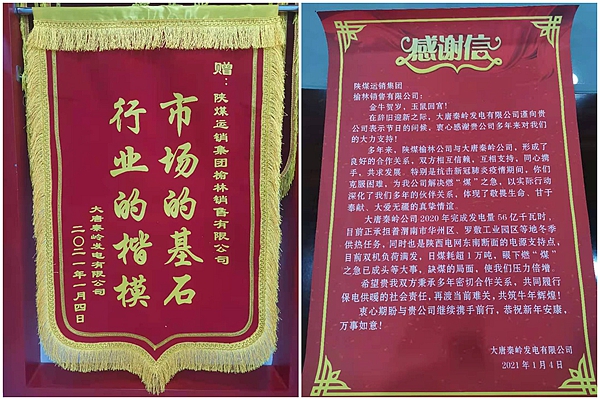 赠：陕煤运销集团榆林销售有限公司
市场的基石
行业的楷模
大唐秦岭发电有限公司
二〇二一年一月四日
感谢信
陕煤运销集团
榆林销售有限公司：
金牛贺岁，玉鼠回宫！
在辞旧迎新之际，大唐秦岭发电有限公司谨向贵
公司表示节日的问候，衷心感谢贵公司多年来对我们
的大力支持！
多年来，陕煤榆林公司与大唐秦岭公司，形成了
良好的合作关系，双方相互信赖，互相支持，同心携
手，共求发展。特别是抗击新冠肺炎疫情期间，你们
克服困难，为我公司解决燃“煤”之急，以实际行动
深化了我们多年的伙伴关系，体现了敬畏生命、甘于
奉献、大爱无疆的真挚情谊。
大唐秦岭公司2020年完成发电量56亿千瓦时，
目前正承担着渭南市华州区、罗敷工业园区等地冬季
供热任务，同时也是陕西电网东南断面的电源支持点，
目前双机负荷满发，日煤耗超1万吨，眼下燃“煤”
之急已成头等大事，缺煤的局面，使我们压力倍增。
希望贵我双方秉承多年密切合作关系，共同履行
保电供暖的社会责任，再渡当前难关，共筑牛年辉煌！
衷心期盼与贵公司继续携手前行，恭祝新年安康，
万事如意！
大唐秦岭发电有限公司
2021年1月4日